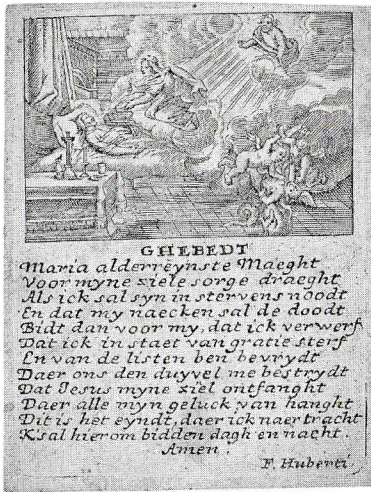 GHEBEDT
Maria alderreynste Maeght
Voor myne ziele sorge draeght
Als ick sal syn in stervens noodt
En dat my naecken sal de doodt
Bidt dan voor my, dat ick verwerf
Dat ick in staet van gratie sterf
En van de listen ben bevrydt
Daer ons den duyvel me bestrydt
Dat Jesus myne ziel ontfanght
Daer alle myn geluck van hanght
Dit is het eyndt, daer ick naer tracht
K'sal hierom bidden dagh en nacht.
Amen.
F. Huberti